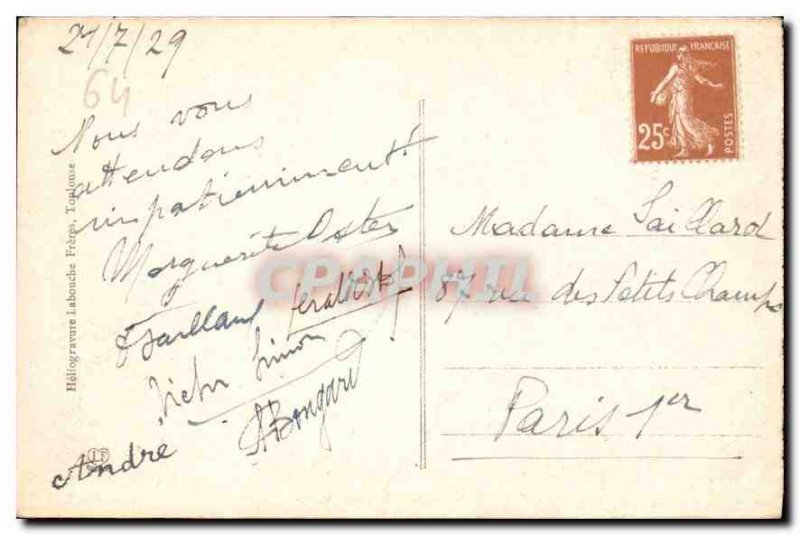 21/7/29
64
Nous vous
attendons
impatiemment !
Marguerite Oster
Victor Simon
ABongard
André
Héliogravure Labouche Frères, Toulouse
LF
CPAPHIL
REPUBLIQUE FRANÇAISE
25c
POSTES
Madame Saillard
87 rue des Petits Champs
Paris 1er